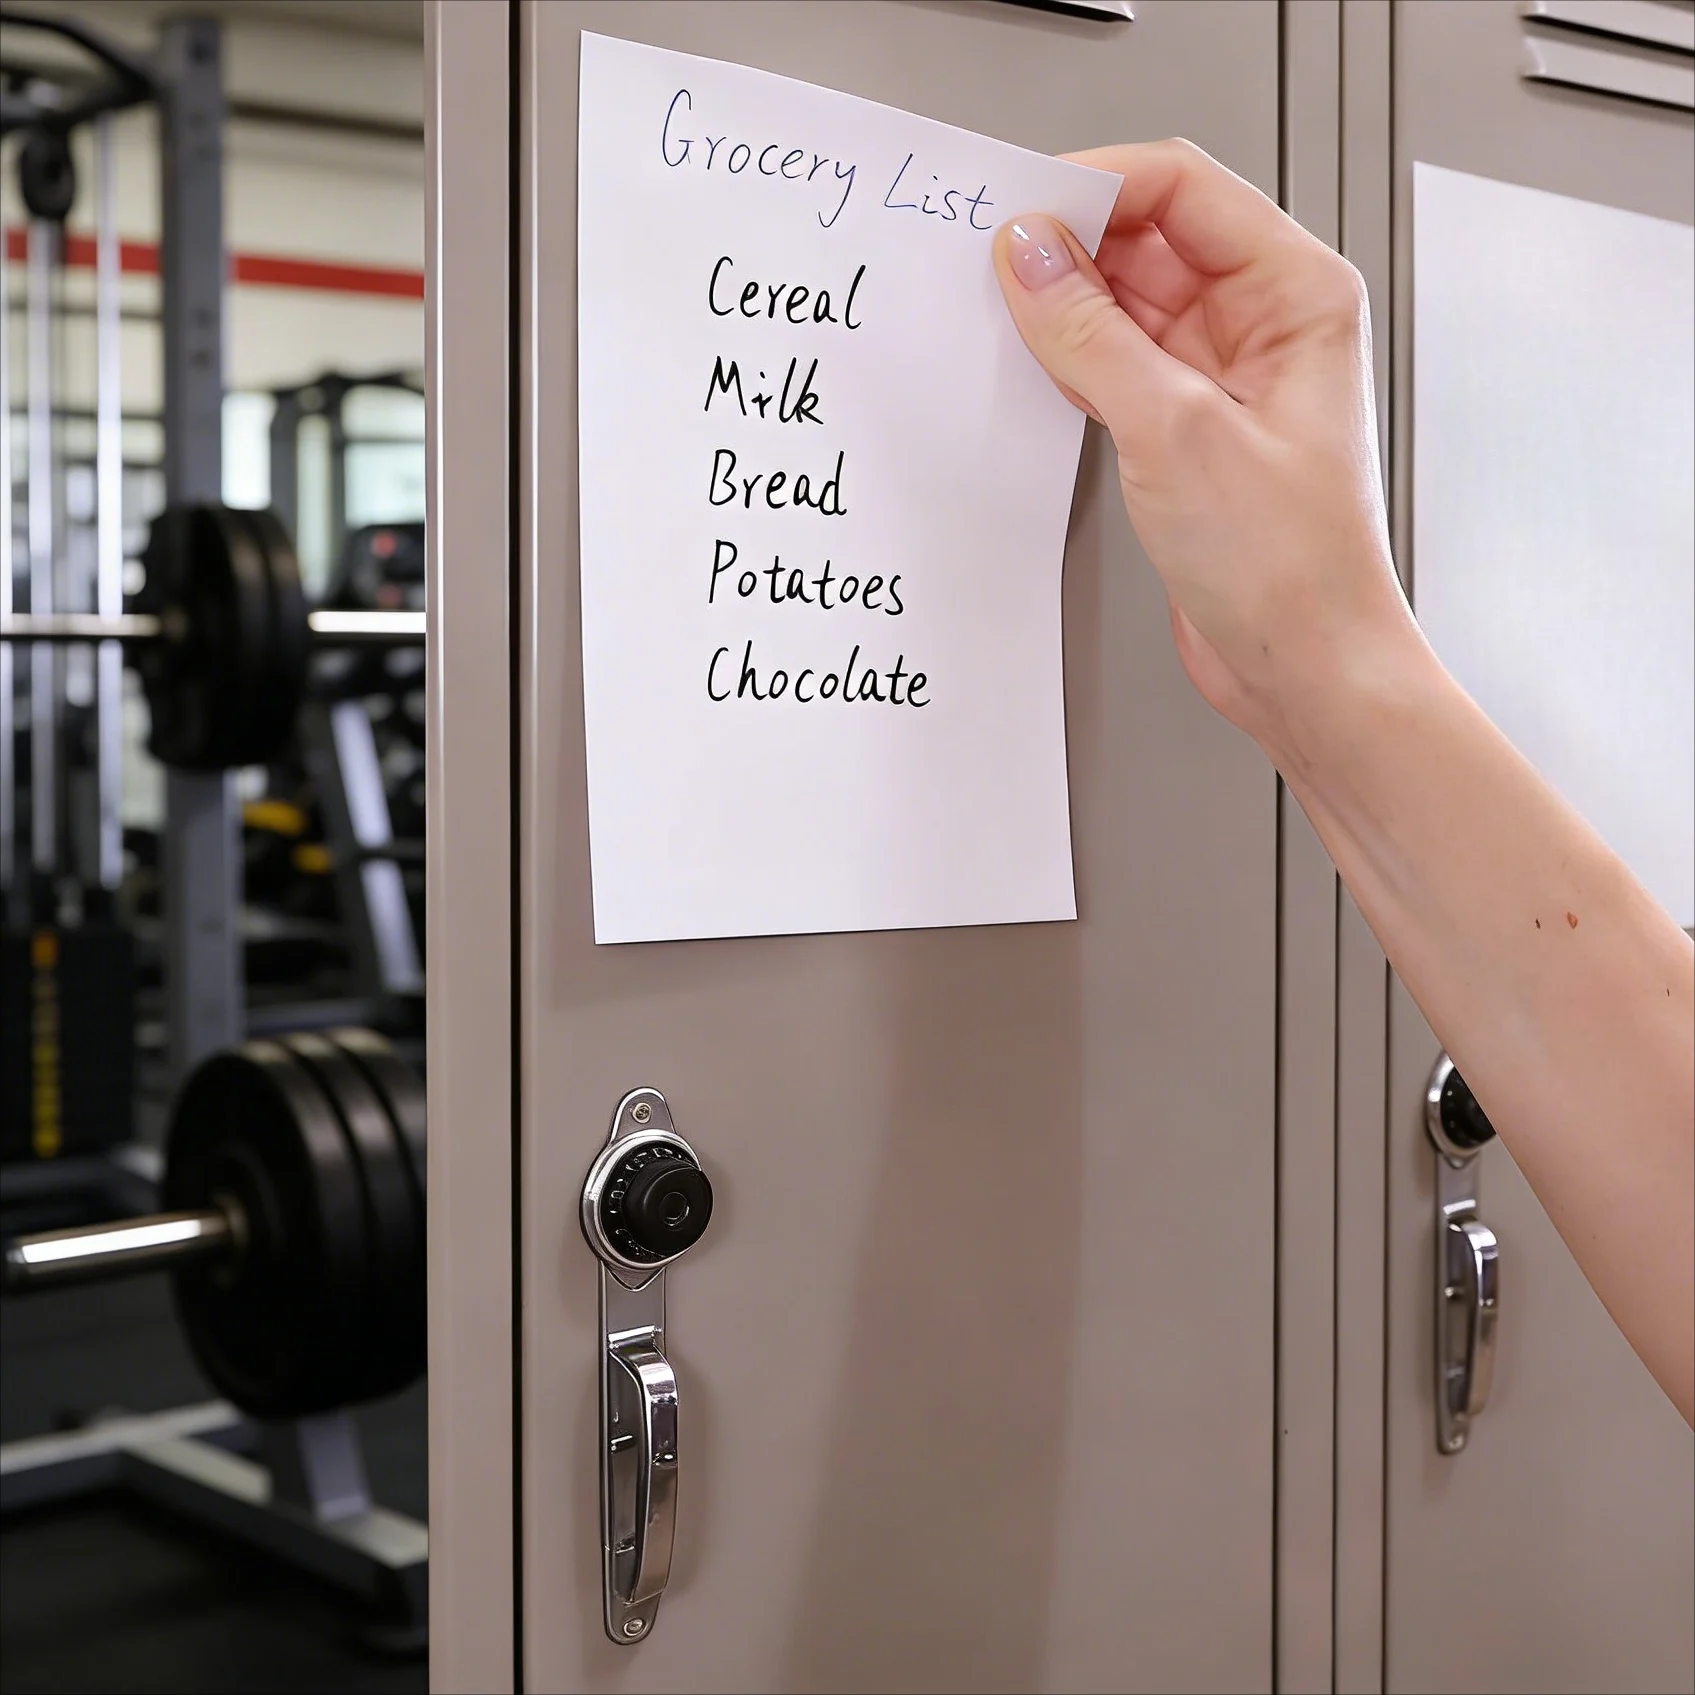 Grocery List
Cereal
Milk
Bread
Potatoes
Chocolate